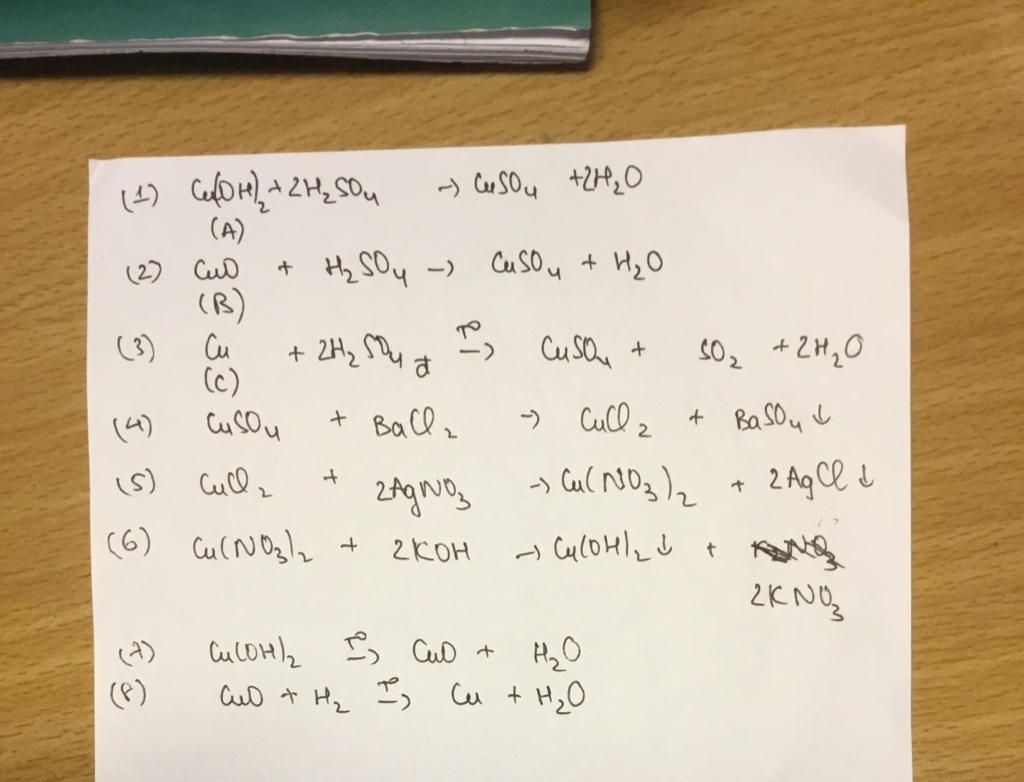 (1) Cu(OH)₂ + 2H₂SO₄ → CuSO₄ + 2H₂O
(A)
(2) CuO + H₂SO₄ → CuSO₄ + H₂O
(B)
(3) Cu + 2H₂SO₄ đ T° → CuSO₄ + SO₂ + 2H₂O
(C)
(4) CuSO₄ + BaCl₂ → CuCl₂ + BaSO₄ ↓
(5) CuCl₂ + 2AgNO₃ → Cu(NO₃)₂ + 2AgCl ↓
(6) Cu(NO₃)₂ + 2KOH → Cu(OH)₂ ↓ +
2KNO₃
(7) Cu(OH)₂ T° → CuO + H₂O
(8) CuO + H₂ T° → Cu + H₂O